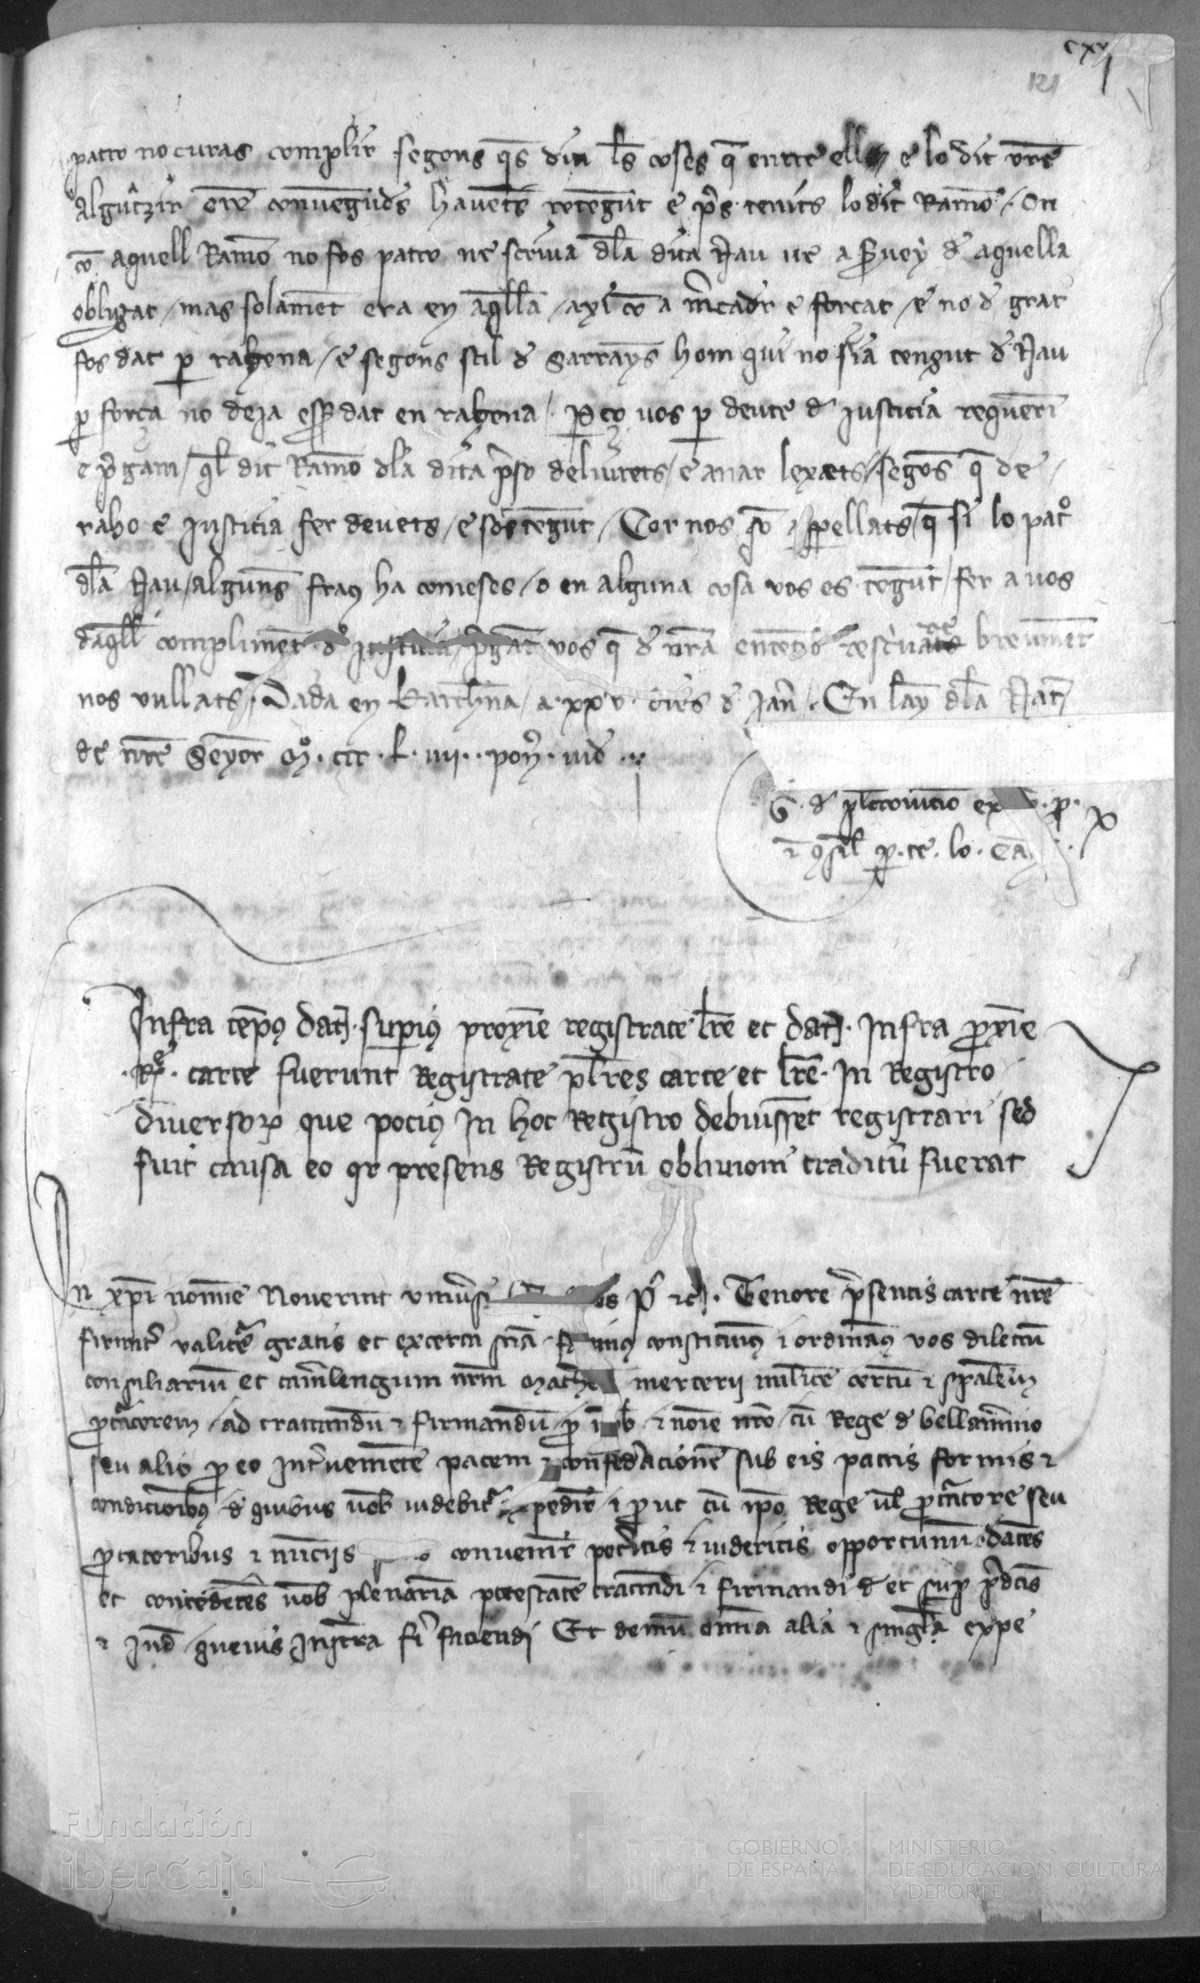 cxvj
121
patro no curas complir segons q̄s diu ls̄ coses q̄ entre ell e lo dit vr̄e
Algutzir ere convenguds havets retengut e p̄s tenits lo dit Ramō / On
cō aquell Ramō no fos patro ne scriva dl̄a dita Nau ne a servey d̄ aquella
obligat / mas solament era en aq̄lla / axi cō a mercader e forçat / e no d̄ grat
fos dat p̄ rahena / e segons stil d̄ Sarrayns hom qui no sia tengut d̄ Nau
p̄ força no deja esser dat en rahena / Perço vos p̄ deute d̄ justicia requerim
e p̄gam / q̄l dit Ramō dl̄a dita p̄so deliurets / e anar lexets / segons q̄ de
raho e justicia fer devets / e sots tengut / Cor nos som apellats q̄ si lo pat°
dl̄a Nau / alguns fraus ha comeses / o en alguna cosa vos es tengut / fer a vos
daq̄ll compliment d̄ justicia p̄gāt vos q̄ d̄ nr̄a entencio breument
nos vullats / Dada en Barchn̄a / a xxv dies d̄ Jan̄ / En lay dl̄a Nat̄
de nr̄e Senyor M° ccc L iiii
G d̄
lo
Infra temp̄ dat̄ superius proxīe registrate lr̄e et dat̄ infra proxīe
Rte carte fuerunt Registrate pl̄res carte et lr̄e In Registro
diversorꝝ que pocius In hoc Registro debuissent registrari sed
fuit causa eo qr presens Registrū oblivioni traditū fuerat
In xp̄i nomīe Noverint univ̄si Nos P̄ ꝛc Tenore p̄sentis carte nr̄e
firmit̄ valitē gratis et ex certa sciā facimus constituimus ⁊ ordinamus vos dilectū
consiliarium et camlengum nr̄m Matheū mercerii milite certū ⁊ sp̄alem
procuratorem ad tractandū ⁊ firmandū p̄ nob̄ ⁊ noīe nr̄o cū Rege d̄ bellamarino
seu alio p̄ eo Intervenīete pacem ⁊ confederacione sub eis pactis formis ⁊
condicionibus d̄ quibus vob̄ videbit̄ expediē ⁊ prout cū ipo Rege ul̄ procuratore seu
procuratoribus ⁊ nunciis convenire potitis ⁊ videritis opportunum dantes
et concedentes vob̄ plenariā potestatē tractandi ⁊ firmandi d̄ et sup̄ p̄dcis
⁊ Ind̄ quevis Instr̄a fi faciendi Et demū omnia alia ⁊ singula expe
Fundación
iberCaja
GOBIERNO
DE ESPAÑA
MINISTERIO
DE EDUCACIÓN, CULTURA
Y DEPORTE